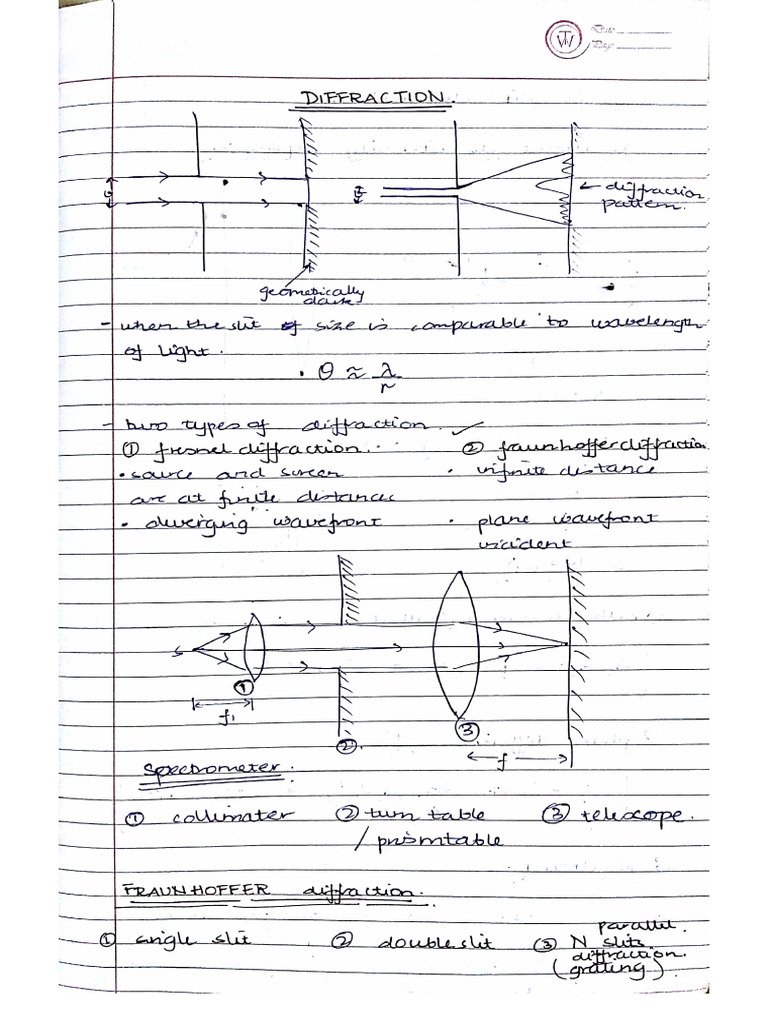 Date
Page
DIFFRACTION.
← diffraction
pattern.
geometrically
dark
- when the slit of size is comparable to wavelength
of light.
. θ ≈ λ/r
- two types of diffraction. ✓
① fresnel diffraction. ② fraunhoffer diffraction
• source and screen • infinite distance
are at finite distances
• diverging wavefront • plane wavefront
incident
S
① 
f₁
②
③
f
Spectrometer.
① collimater ② turn table ③ telescope.
/ prismtable
FRAUNHOFFER diffraction.
① single slit ② double slit ③ N parallel slits.
diffraction.
(grating)